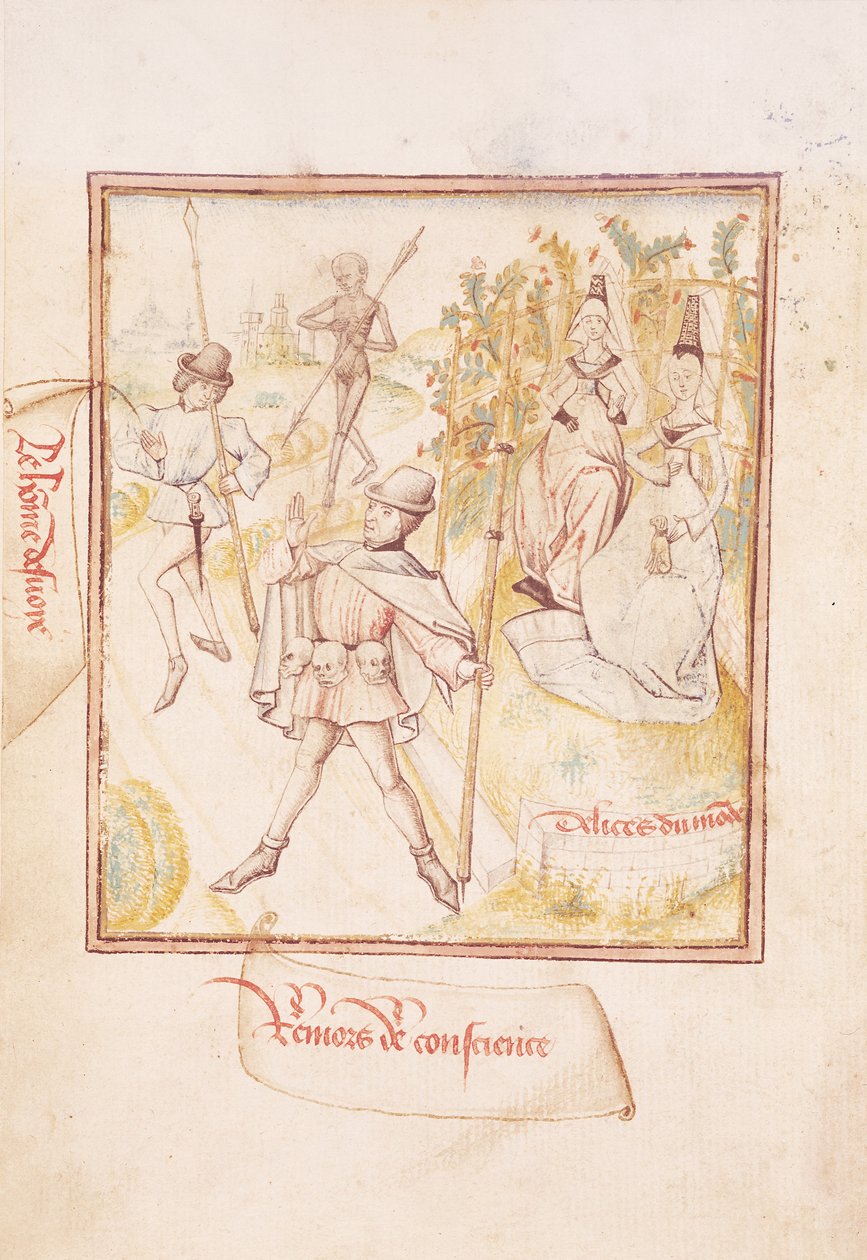 Le hõme desuoye
Delices du mõde
Remors de conscience